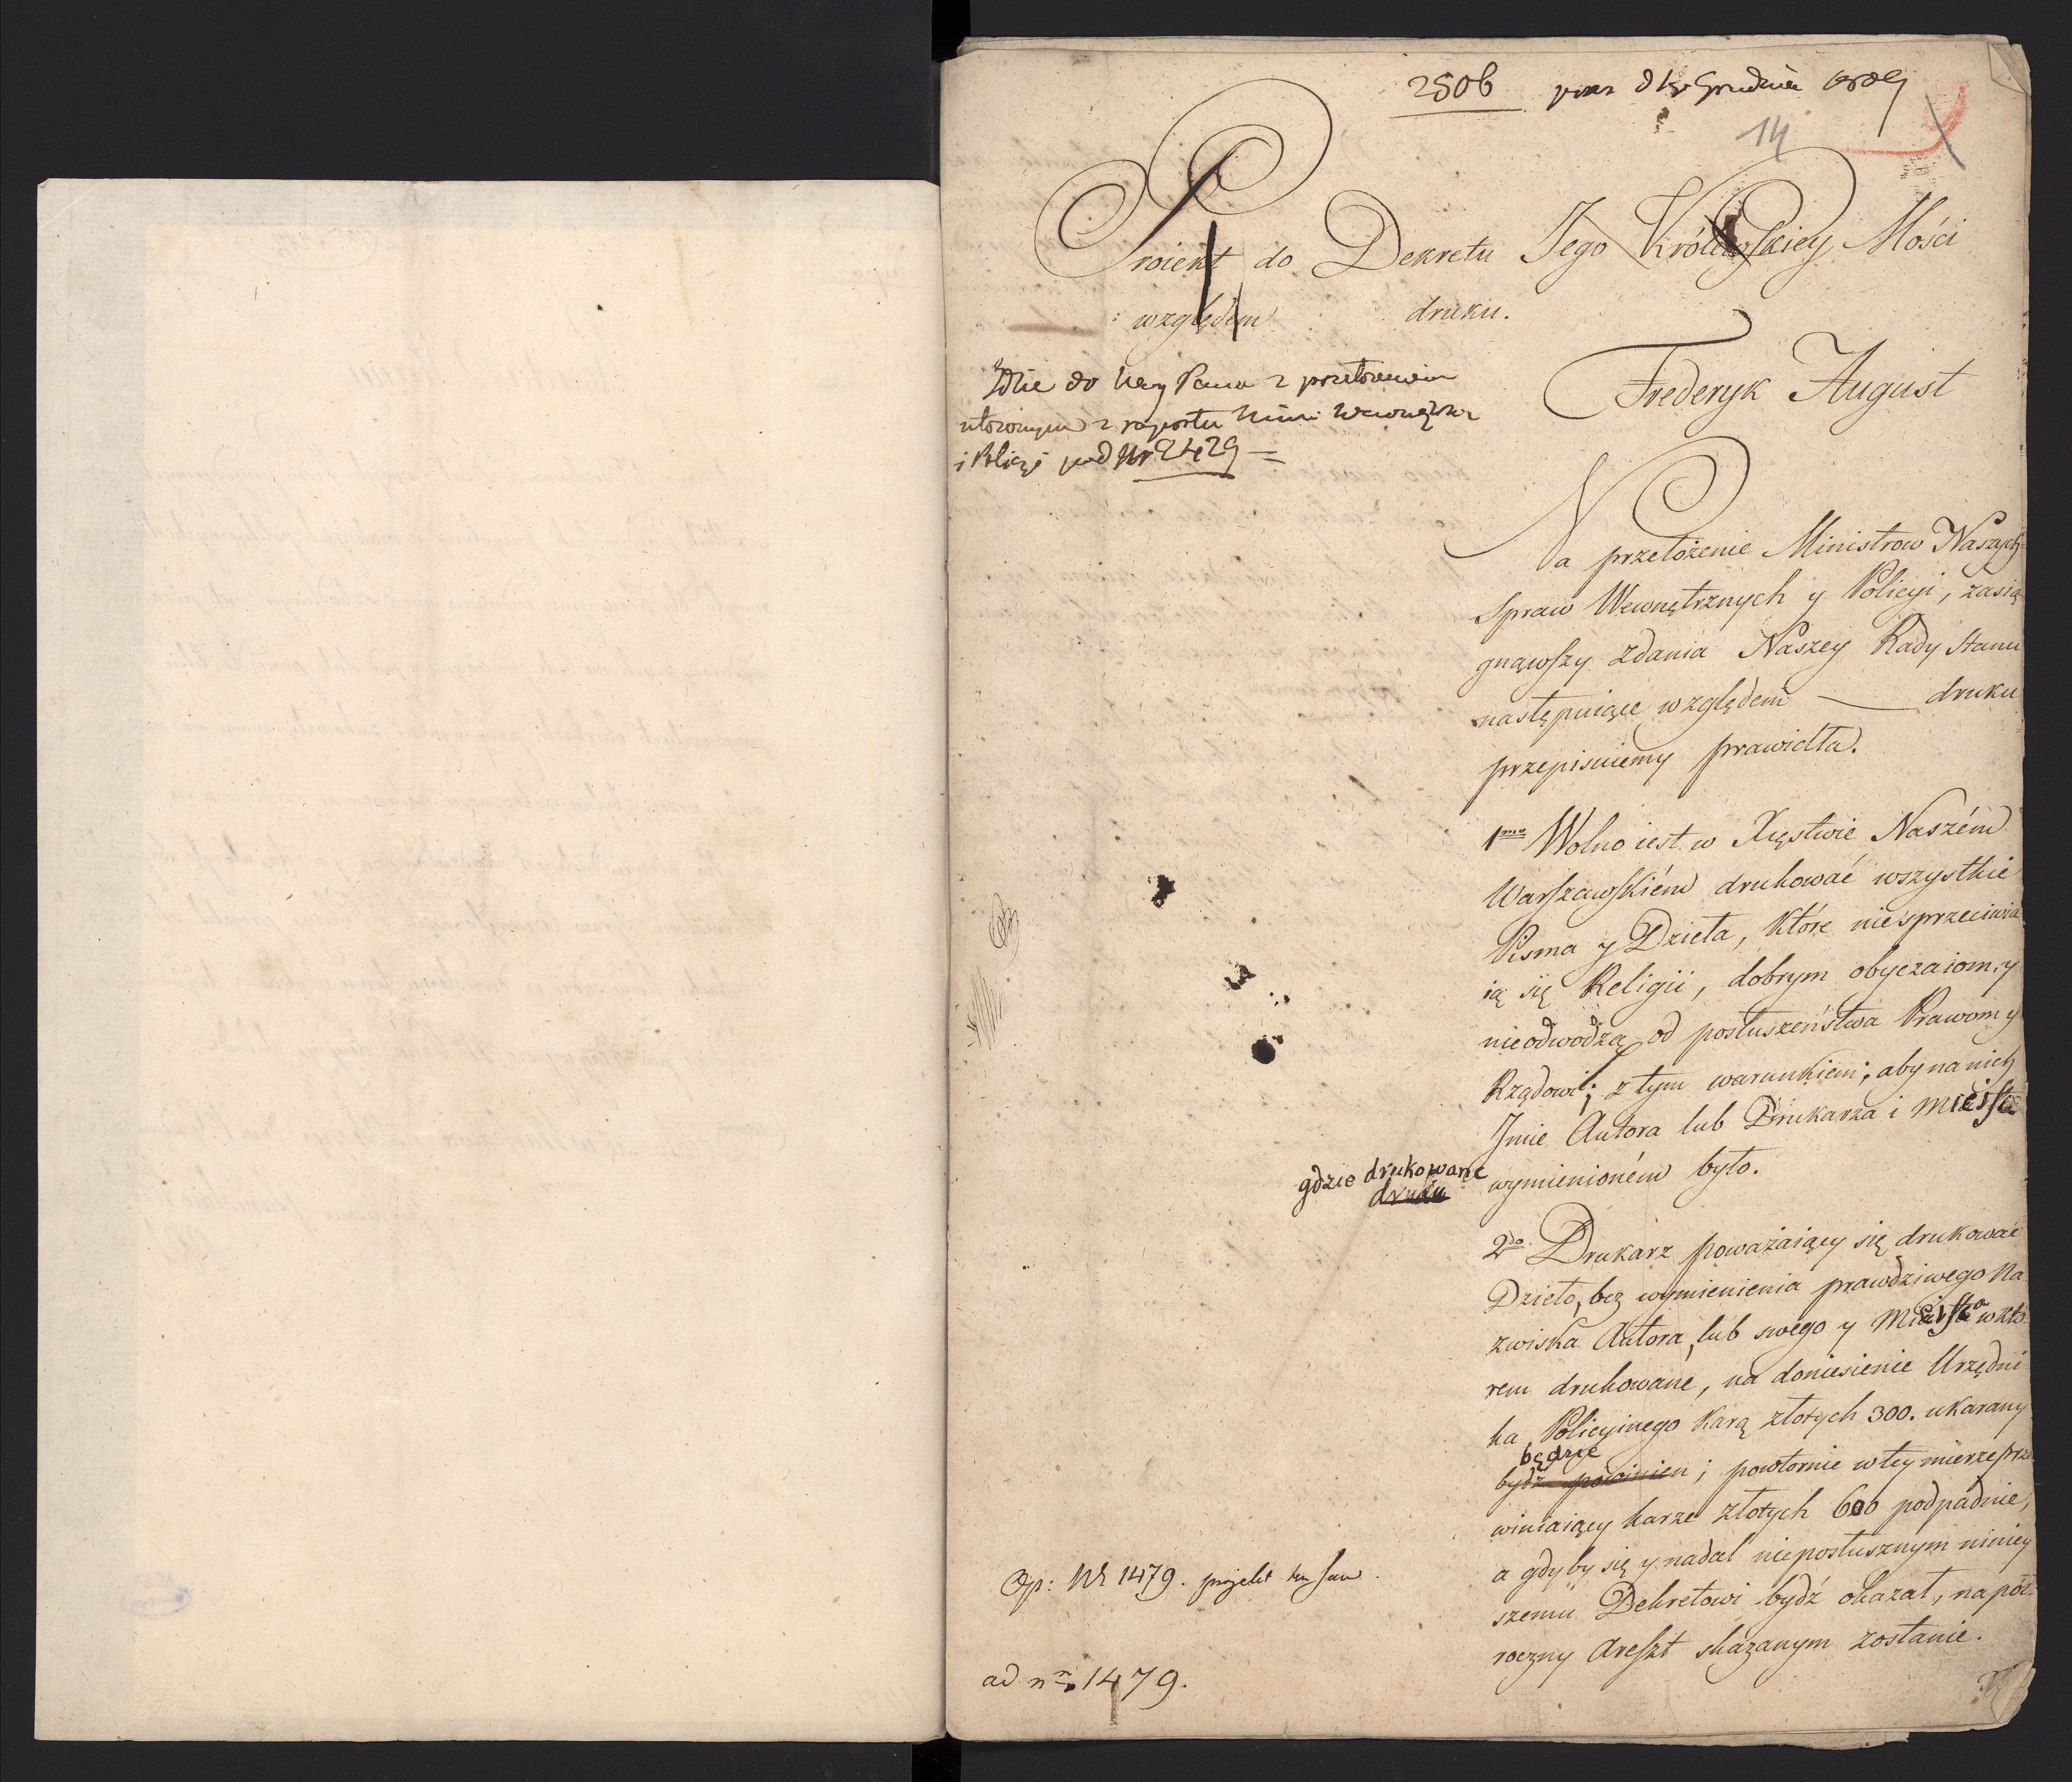 2506
14
Proiekt do Dekretu Jego Królewskiey Mości
względem druku.
Idzie do Nay Pana z przełożeniem
ułożonym z raportu Minra Wewnętrzn
i Policyi pod Nr 2429 =
Frederyk August
Na przełożenie Ministrow Naszych
Spraw Wewnętrznych y Policyi, zasią
gnąwszy zdania Naszey Rady Stanu
następuiące względem — druku
przepisuiemy prawidła.
1mo Wolno iest w Xięstwie Naszém
Warszawskiém drukować wszystkie
Pisma y Dzieła, które niesprzeciwia
ią się Religii, dobrym obyczaiom, y
nieodwodzą od posłuszeństwa Prawom y
Rządowi; z tym warunkiem, aby na nich
Jmie Autora lub Drukarza i mieisce
gdzie drukowane
druku
wymienioném było.
2do Drukarz poważaiący się drukować
Dzieło, bez wymienienia prawdziwego Na
zwiska Autora, lub swego y Mieisca w któ
rem drukowane, na doniesienie Urzędni
ka Policyinego karą złotych 300. ukarany
będzie
bydź powinien; powtornie w tey mierze prze
winiaiący karze złotych 600 podpadnie,
a gdyby się y nadal nieposłusznym niniey
szemu Dekretowi bydź okazał, na pół
roczny Areszt skazanym zostanie.
Op: Nr 1479. projekt
ad nr 1479.